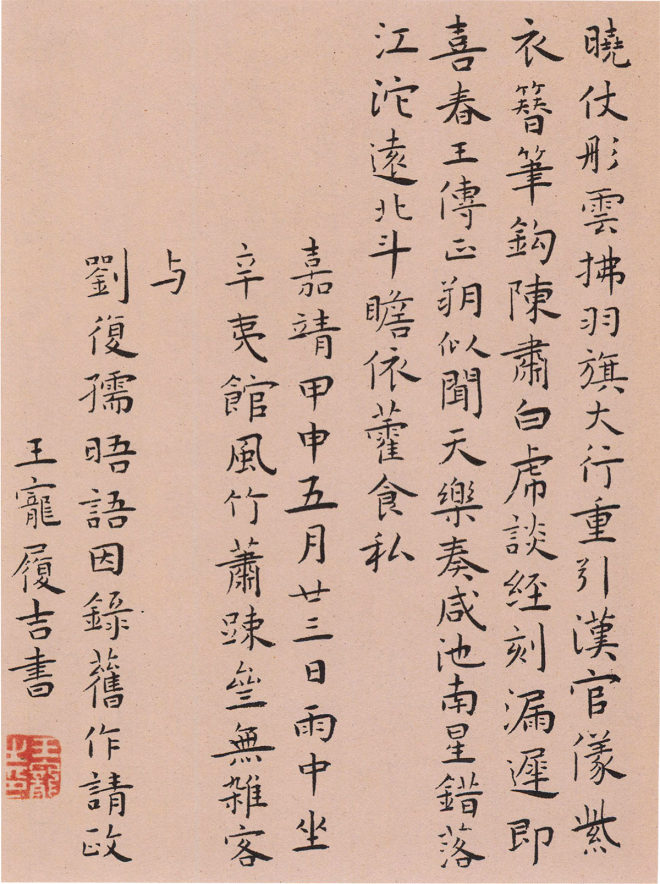 曉仗彤雲拂羽旗大行重引漢官儀紫
衣簪筆鈎陳肅白虎談經刻漏遲即
喜春王傳正朔似聞天樂奏咸池南星錯落
江沱遠北斗瞻依藿食私
嘉靖甲申五月廿三日雨中坐
辛夷館風竹蕭踈絶無雜客
与
劉復孺晤語因錄舊作請政
王寵履吉書
王寵之印